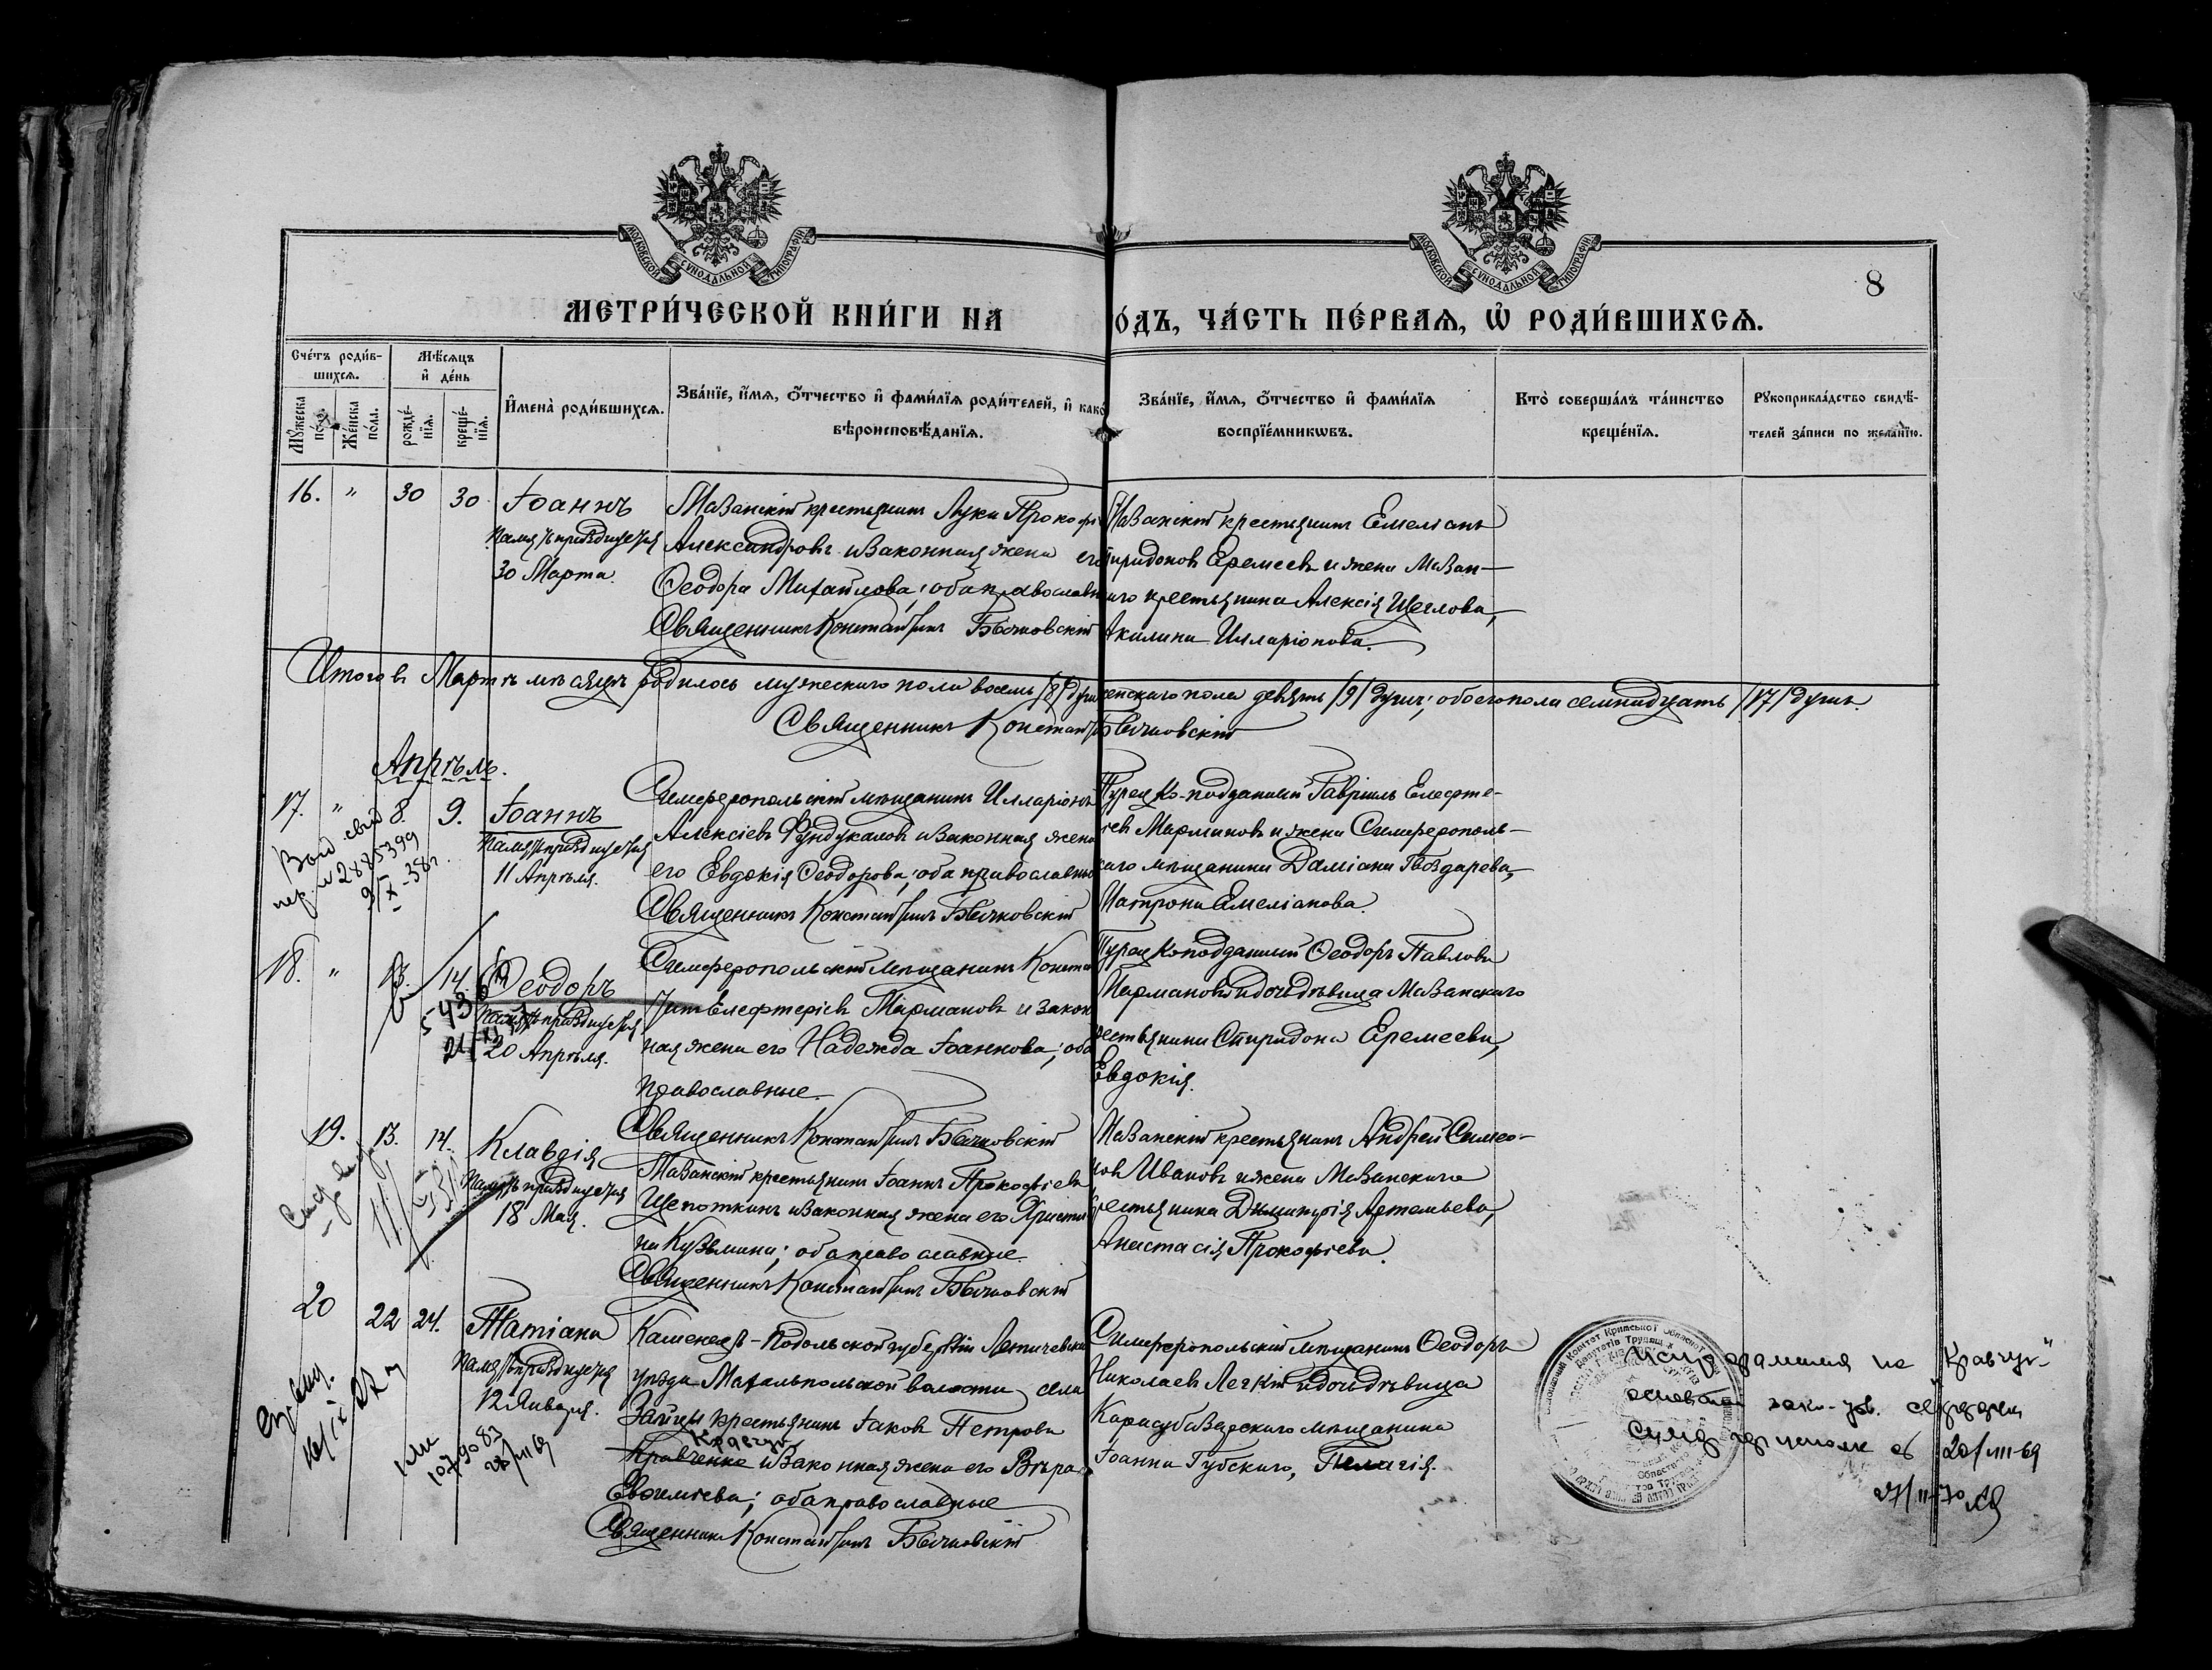 МОСКОВСКОЙ СѴНОДАЛЬНОЙ ТИПОГРАФІИ
МОСКОВСКОЙ СѴНОДАЛЬНОЙ ТИПОГРАФІИ
8
МЕТРИ́ЧЕСКОЙ КНИ́ГИ НА
О́ДЪ, ЧА́СТЬ ПЕ́РВАѦ, Ѡ҆ РОДИ́ВШИХСѦ.
Сче́тъ роди́в-
шихсѧ.
Мѣ́сѧцъ
и҆ де́нь
Мꙋ́жеска
по́ла.
Же́нска
по́ла.
рожде́-
нїѧ.
креще́-
нїѧ.
И҆мена̀ роди́вшихсѧ.
Зва́нїе, и҆́мѧ, ѻ҆́тчество и҆ фами́лїѧ роди́телей, и҆ како
вѣроисповѣ́данїѧ.
Зва́нїе, и҆́мѧ, ѻ҆́тчество и҆ фами́лїѧ
воспрїе́мникѡвъ.
Кто̀ соверша́лъ та́инство
креще́нїѧ.
Рꙋкоприкла́дство свидѣ́-
телей за́писи по жела́нїю.
16. " 30 30
Іоаннъ
30 Марта.
Мазанскій крестьянинъ Лука Прокофі
Александровъ и законная жена его
Ѳеодора Михайлова; оба православн
Священникъ Константинъ Бычковскій
Мазанскій крестьянинъ Емеліанъ
пиридоновъ Еремеевъ и жена Мазан-
аго крестьянина Алексія Щеглова,
Акилина Илларіонова.
Итого въ Мартѣ мѣсяцѣ родилось мужескаго пола восемь /8/ душ
енскаго пола девять /9/ душъ; обоего пола семнадцать /17/ душъ.
Священникъ Констант
Бычковскій
Апрѣль.
17. " 8. 9.
Іоаннъ
11 Апрѣля.
№ 2885399
9/X-38г
Симферопольскій мѣщанинъ Илларіонъ
Алексіевъ Фундукаловъ и законная жена
его Евдокія Ѳеодорова; оба православны
Священникъ Константинъ Бычковскій
Турецко-подданный Гавріилъ Елефте-
ріевъ Мармановъ и жена Симферополь-
скаго мѣщанина Даміана Гвоздарева,
Матрона Емеліанова.
18. " 13. 14.
Ѳеодоръ
20 Апрѣля.
Симферопольскій мѣщанинъ Конста
тинъ Елефтеріевъ Мармановъ и закон
ная жена его Надежда Іоаннова; оба
православные.
Священникъ Константинъ Бычковскій
Турецкоподданный Ѳеодоръ Павловъ
Мармановъ и дочь дѣвица Мазанскаго
рестьянина Спиридона Еремеева,
Евдокія.
19. 13. 14.
Клавдія
18 Мая.
Мазанскій крестьянинъ Іоаннъ Прокофіевъ
Щепоткинъ и законная жена его Христи
на Кузьмина; оба православные
Священникъ Константинъ Бычковскій
Мазанскій крестьянинъ Андрей Симео-
новъ Ивановъ и жена Мазанскаго
крестьянина Димитрія Артемьева,
Анастасія Прокофіева.
20 22 24.
Татіана
12 Января.
Каменецъ-Подольской губерніи Летичевска
уѣзда Михальпольской волости села
Зайцы крестьянинъ Іаковъ Петровъ
Кравчук
Кравченко и законная жена его Вѣра
Евѳимієва; оба православные
Священникъ Константинъ Бычковскій
Симферопольскій мѣщанинъ Ѳеодоръ
Николаевъ Легкій и дочь дѣвица
Карасубазарскаго мѣщанина
Іоанна Губскаго, Пелагія.
"Кравчук"
20/VIII-69
27/II-70